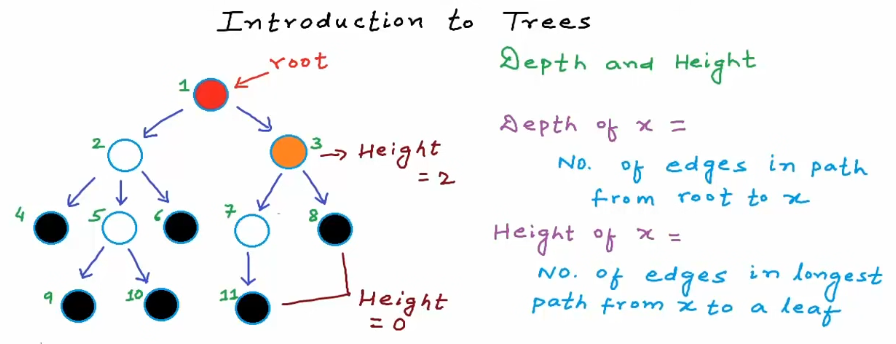 Introduction to Trees
root
1
2
3
→ Height
= 2
4
5
6
7
8
9
10
11
Height
= 0
Depth and Height
Depth of x =
No. of edges in path
from root to x
Height of x =
No. of edges in longest
path from x to a leaf